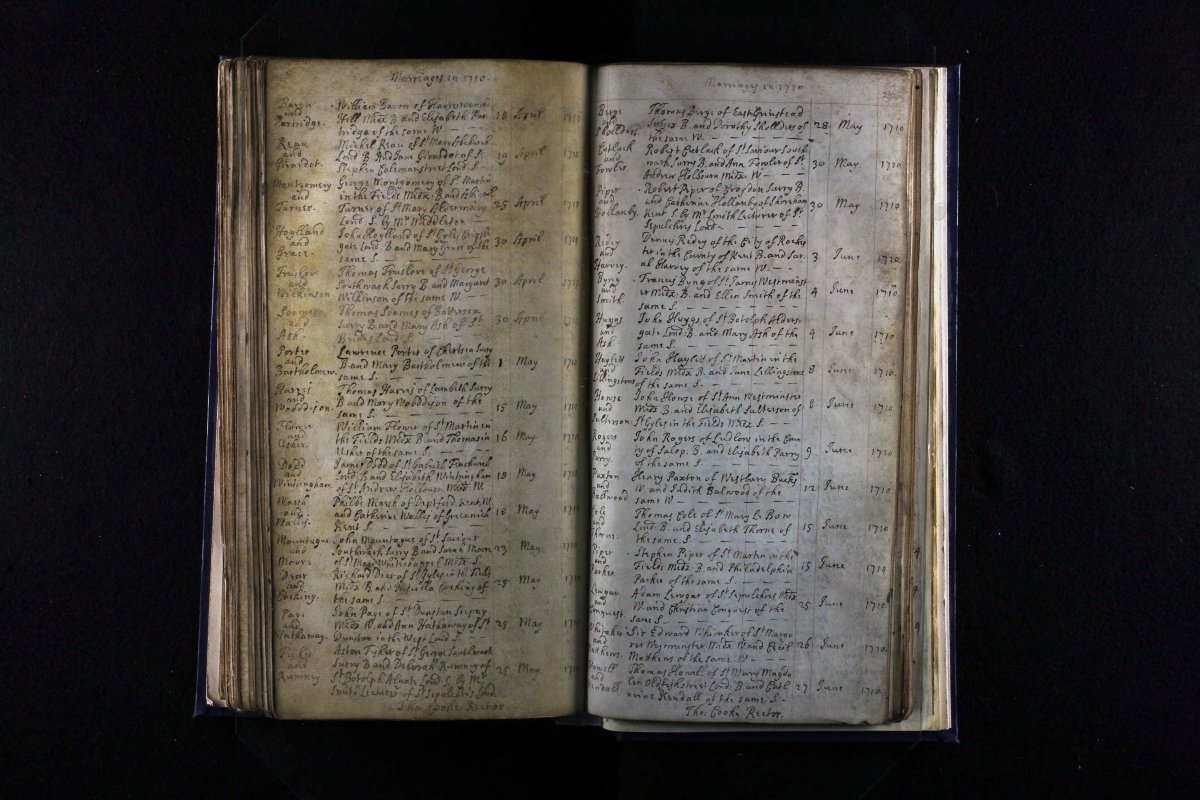 Marriages in 1710
Baron William Baron of
and Hill Midx B. and Elizabeth Par 18 April 1710
Partridge. tridge of the same W
Reau Michel Reau of St Mary
and Lond B. and Girardot of St 19 April 1710
Girardot. Stephen Colemanstreet Lond S.
Montgomery George Montgomery of St Martin
and in the Fields Midx B and Abigal
Turner. Turner of St Mary Aldermary 25 April 1710
Lond. S. by Mr Middleton
Hoylland John Hoylland of St Gyles Cripple
and gate Lond. B and Mary of the 30 April 1710
same S.
Truslove Thomas Truslove of St George
and Southwark Surry B and Margaret 30 April 1710
Wilkinson Wilkinson of the same W.
Soames Thomas Soames of Battersea
and Surry B and Mary Ash of St 30 April 1710
Ash. Brides Lond S.
Porter Lawrence Porter of Chertsea Surry
and B and Mary Bartholmew of the 1 May 1710
Bartholmew. same S.
Harris Thomas Harris of Lambeth Surry
and B and Mary Wooddison of the 15 May 1710
Wooddison. same S.
Flower William Flower of St Martin in
and the Fields Midx B and Thomasin 16 May 1710
Usher. Usher of the same S.
Dodd James Dodd of St Gabriel Fenchurch
and Lond. B and Elizabeth Winteringham 18 May 1710
of St Andrew Holbourn Midx W.
Marsh Marsh of Deptford Kent W.
and and Catherine Wallis of Greenwich 18 May 1710
Wallis. Kent S.
Mountague John Mountague of St Saviour
and Southwark Surry B and Sarah Moore 23 May 1710
Moore of St Mary Whitechappel Midx S.
Dear Richard Dear of St Gyles in the Fields
and Midx B and Priscilla Cocking of 25 May 1710
Cocking. the same S.
Page John Page of St Dunstan Stepny
and Midx W. and Ann Hathaway of St 25 May 1710
Hathaway. Dunstan in the West Lond S.
Aston of St George Southwark
and Surry B and Deborah Rumney of 25 May 1710
Rumney St Botolph Algate Lond S. by Mr
Smith Lecturer of St Sepulchres Lond.
Tho: Cooke Rector
Marriages in 1710
Berge Thomas Berge of East Grinstead
and Sussex B. and Dorothy Shollders of 28 May 1710
Shollders the same W.
Cutlack Robert Cutlack of St Saviour South
and wark Surry B. and Ann Fowler of St 30 May 1710
Fowler. Andrew Holbourn Midx. W
Piper Robert Piper of Croydon Surry B.
and and Catherine Hollanby of Shoreham 30 May 1710
Hollanby. Kent S. by Mr Smith Lecturer of St
Sepulchres Lond
Ridey Denny Ridey of the City of Roches
and ter in the County of Kent B. and Sar 3 June 1710
Harvey. ah Harvey of the same W.
Byng Francis Byng of St James Westminst
and er Midx. B. and Ellin Smith of the 4 June 1710
Smith same S.
Huggs John Huggs of St Botolph Alders
and gate Lond. B. and Mary Ash of the 4 June 1710
Ash same S.
Haylett John Haylett of St Martin in the
and Fields Midx B. and Jane Lillingstone 8 June 1710
Lillingstone of the same S.
Howse John Howse of St Ann Westminster
and Midx B. and Elizabeth Salterson of 8 June 1710
Salterson St Gyles in the Fields Midx S.
Rogers John Rogers of Ludlow in the Coun
and ty of Salop. B. and Elizabeth Parry 9 June 1710
Parry of the same S.
Paxton Henry Paxton of Westbury Bucks
and W. and Judith Balwood of the 12 June 1710
Balwood same W
Cole Thomas Cole of St Mary Le Bow
and Lond. B. and Elizabeth Thorne of 15 June 1710
Thorne. the same S.
Piper Stephen Piper of St Martin in the
and Fields Midx B. and Philadelphia 15 June 1710
Parker. Parker of the same S.
Adam of St Sepulchres Midx
and W. and Christian Conquest of the 25 June 1710
Conquest same S.
Whitaker Sir Edward Whitaker of St Marga
and ret Westminster Midx W and Cecil 26 June 1710
Mathews. Mathews of the same W
Howell Thomas Howell of St Mary Magda
and len Oldfishstreet Lond B and Cath 27 June 1710
Kendall arine Kendall of the same. S
Tho: Cooke Rector.